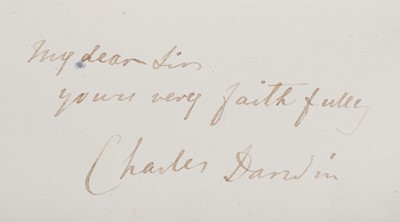 My dear Sir
yours very faithfully
Charles Darwin